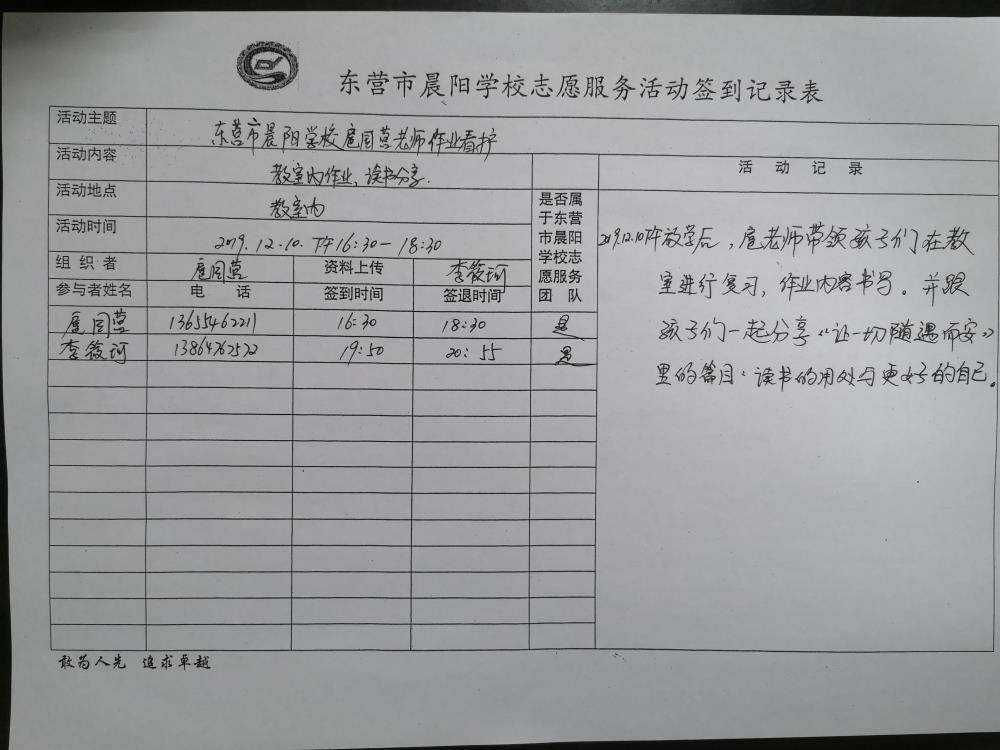 东营市晨阳学校志愿服务活动签到记录表
活动主题
东营市晨阳学校扈同营老师作业看护
活动内容
教室内作业、读书分享.
活动地点
教室内
活动时间
2019.12.10.下午16:30-18:30
是否属
于东营
市晨阳
学校志
愿服务
团 队
活 动 记 录
组 织 者 扈同营 资料上传 李筱珂
参与者姓名 电 话 签到时间 签退时间
扈同营 13655462211 16:30 18:30 是
李筱珂 19:50 20:55 是
2019.12.10下午放学后,扈老师带领孩子们在教
室进行复习,作业内容书写。并跟
孩子们一起分享《让一切随遇而安》
里的篇目:读书的用处与更好的自己。
敢为人先 追求卓越